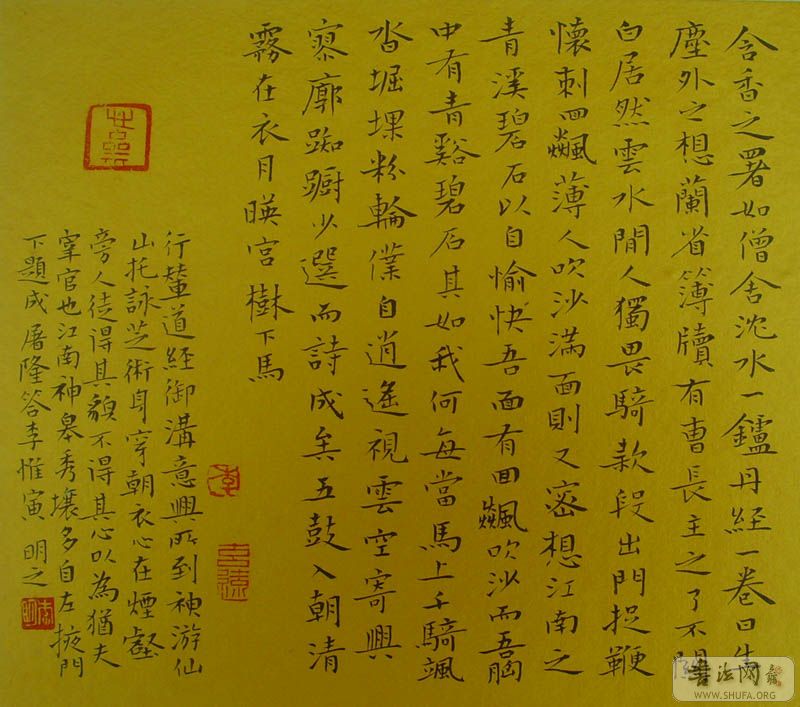 含香之署如僧舍沈水一鑪丹經一卷日生
塵外之想蘭省簿牘有曹長主之了不關
白居然雲水閒人獨畏騎款段出門捉鞭
懷刺回飆薄人吹沙滿面則又密想江南之
青溪碧石以自愉快吾面有回飆吹沙而吾胸
中有青谿碧石其如我何每當馬上千騎颯
沓堀堁粉輪僕自逍遙視雲空寄興
寥廓踟躕少選而詩成矣五鼓入朝清
霧在衣月暎宮樹下馬
行輦道經御溝意興所到神游仙
山托詠芝術身穿朝衣心在煙壑
旁人徒得其貌不得其心以為猶夫
宰官也江南神皋秀壤多自左掖門
下題成屠隆答李惟寅 明之
書法网
WWW.SHUFA.ORG